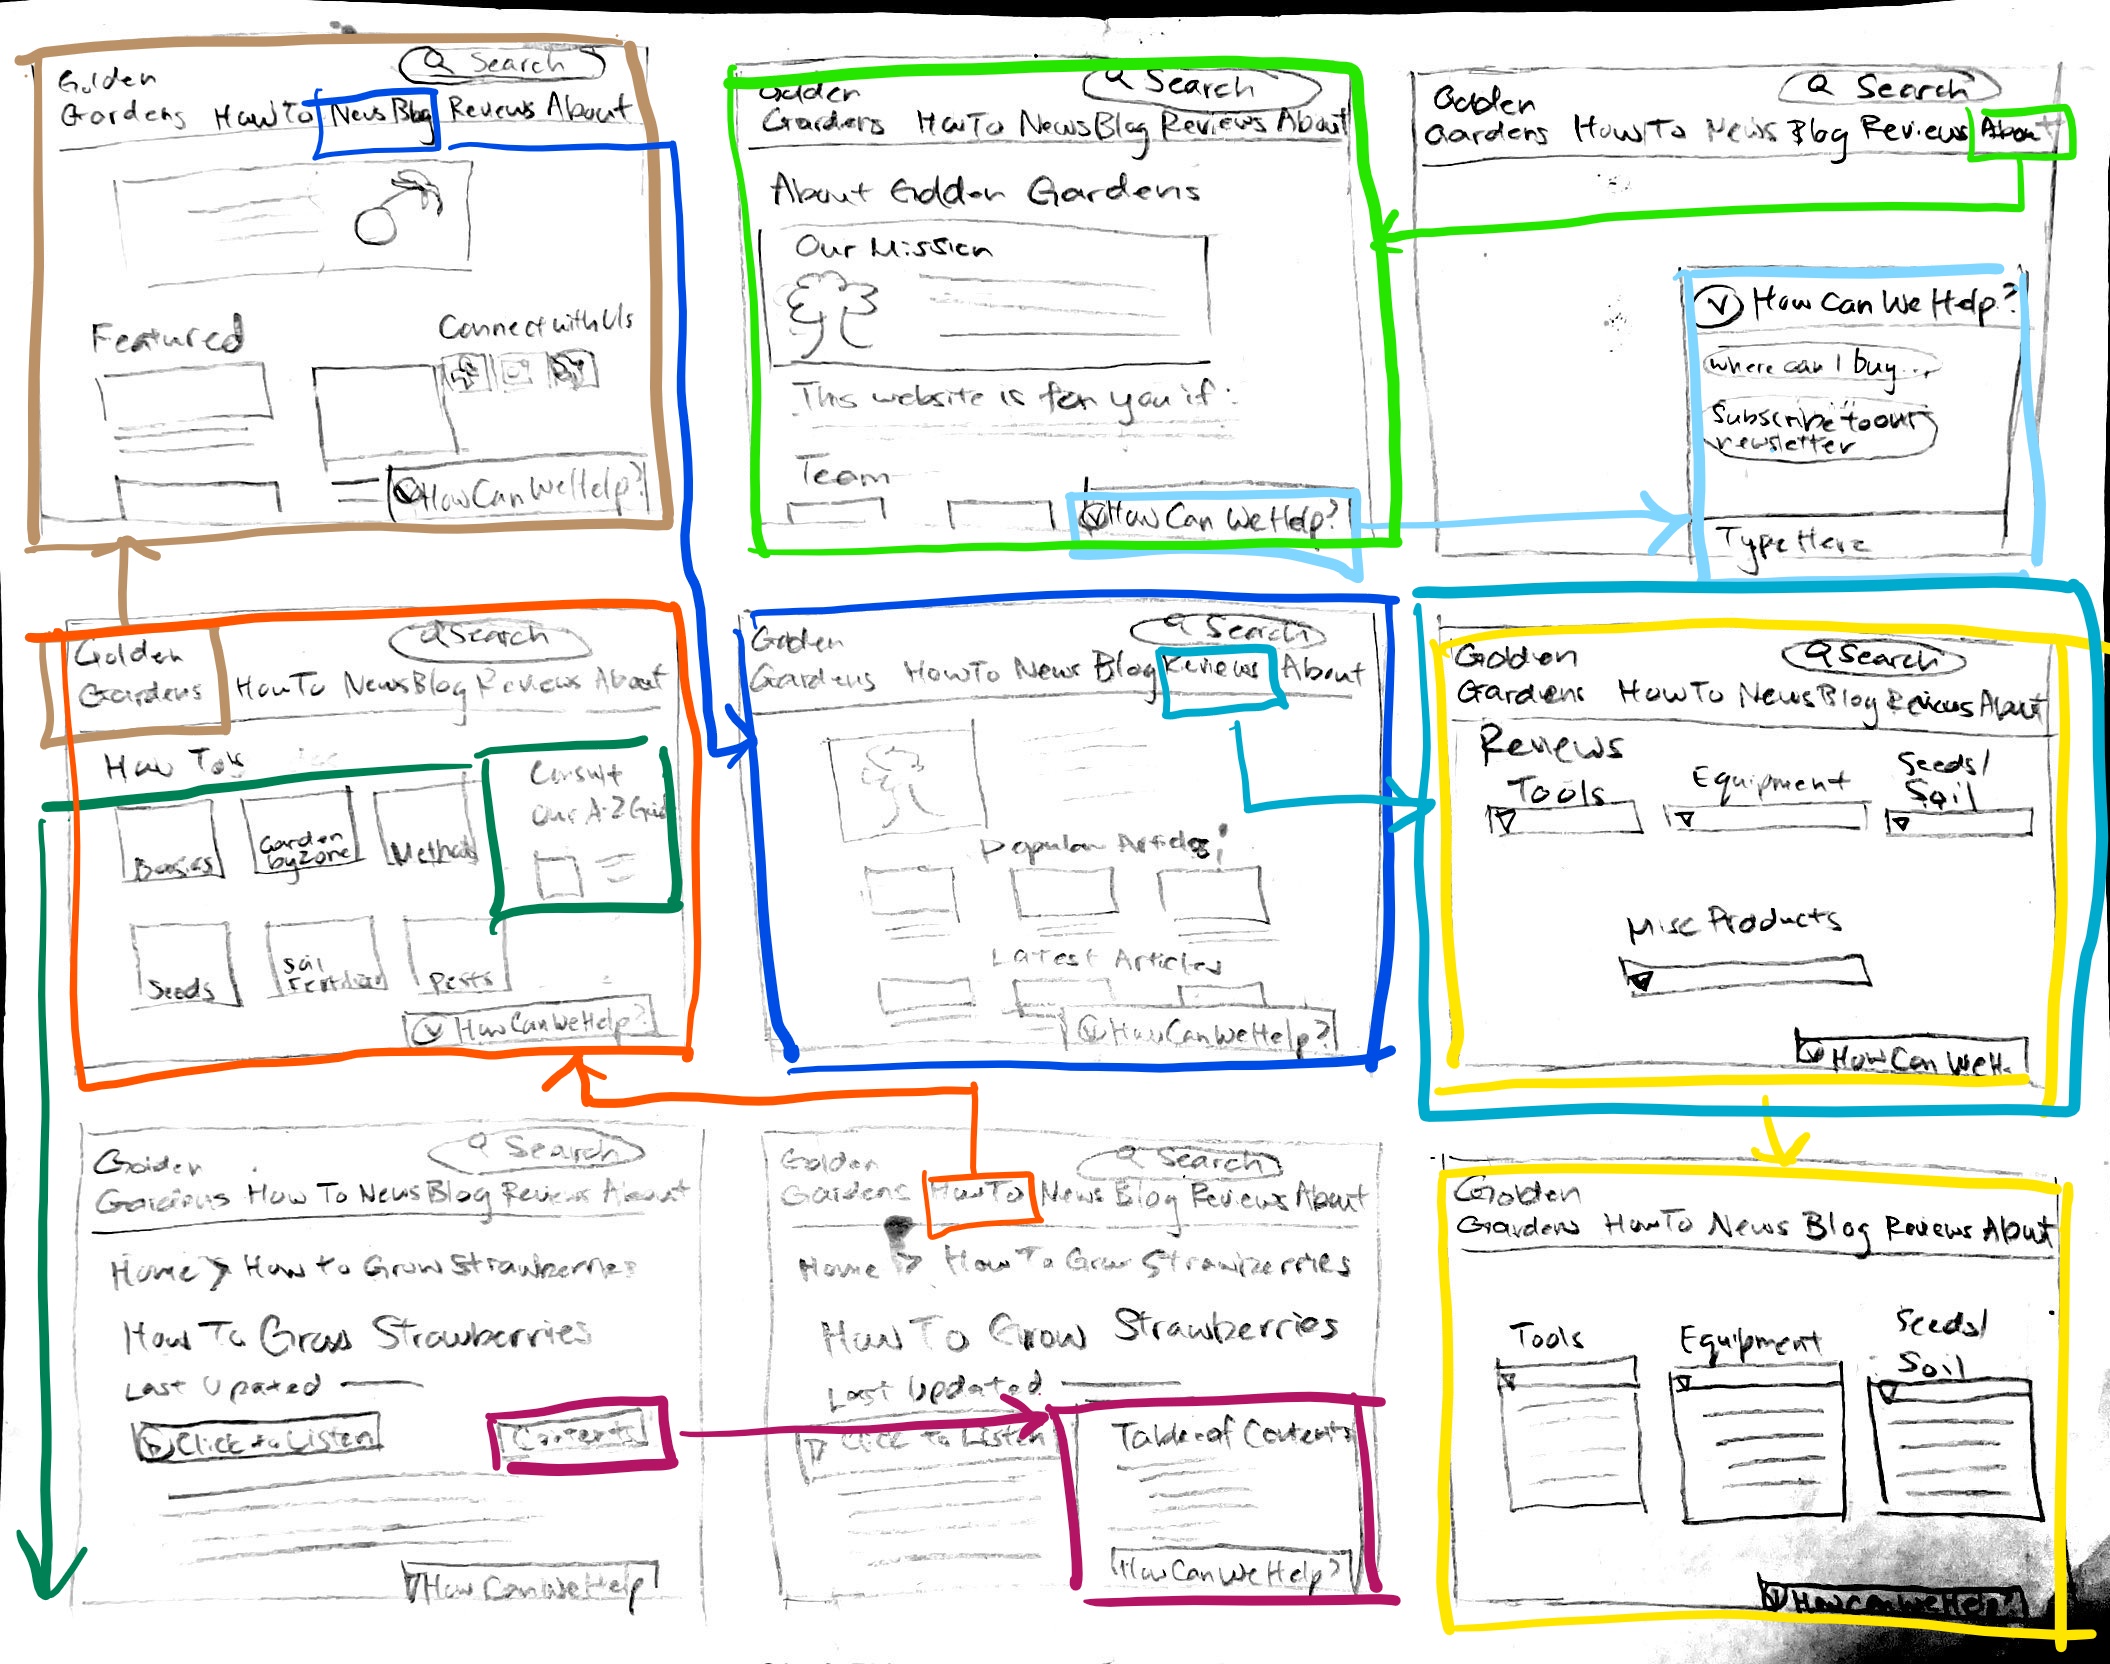 Golden
Gardens
Search
How To News Blog Reviews About
Featured
Connect with Us
How Can We Help?
Golden
Gardens
Search
How To News Blog Reviews About
About Golden Gardens
Our Mission
This website is for you if:
Team
How Can We Help?
Golden
Gardens
Search
How To News Blog Reviews About
How Can We Help?
Where can I buy...
Subscribe to our
newsletter
Type Here
Golden
Gardens
Search
How To News Blog Reviews About
How Tos
Basics
Garden
by Zone
Methods
Consult
Our A-Z Guid
Seeds
Soil
Fertilizer
Pests
How Can We Help?
Golden
Gardens
Search
How To News Blog Reviews About
Popular Articles
Latest Articles
How Can We Help?
Golden
Gardens
Search
How To News Blog Reviews About
Reviews
Tools
Equipment
Seeds/
Soil
Misc Products
How Can We H.
Golden
Gardens
Search
How To News Blog Reviews About
Home > How to Grow Strawberries
How To Grow Strawberries
Last Upated
Click to Listen
Contents
How Can We Help
Golden
Gardens
Search
How To News Blog Reviews About
Home > How To Grow Strawberries
How To Grow Strawberries
Last Updated
Click to Listen
Table of Contents
How Can We Help?
Golden
Gardens
How To News Blog Reviews About
Tools
Equipment
Seeds/
Soil
How Can We Help?